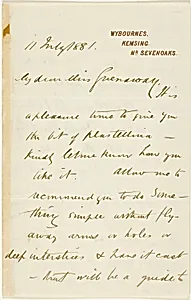 WYBOURNES,
KEMSING,
Nr SEVENOAKS.
11 July 1881.
My dear Miss Greenaway, (It is
a pleasure to me to give you
the bit of plastellina —
kindly let me know how you
like it. Allow me to
recommend you to do some-
thing simple without fly-
away arms or holes or
deep interstices & have it cast
— that will be a guide to